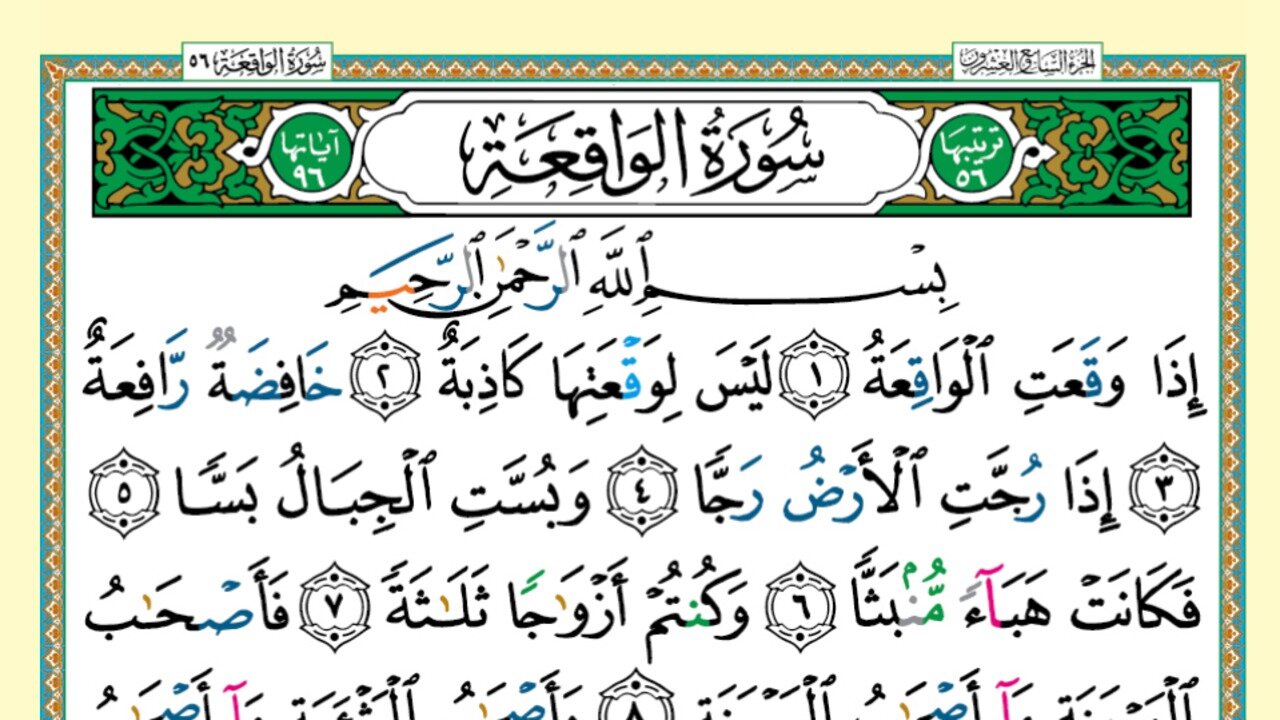 الجزء السابع والعشرون
سورة الواقعة ٥٦
ترتيبها ٥٦
سُورَةُ الْوَاقِعَةِ
آياتها ٩٦
بِسْمِ ٱللَّهِ ٱلرَّحْمَٰنِ ٱلرَّحِيمِ
إِذَا وَقَعَتِ ٱلْوَاقِعَةُ ١ لَيْسَ لِوَقْعَتِهَا كَاذِبَةٌ ٢ خَافِضَةٌ رَّافِعَةٌ
٣ إِذَا رُجَّتِ ٱلْأَرْضُ رَجًّا ٤ وَبُسَّتِ ٱلْجِبَالُ بَسًّا ٥
فَكَانَتْ هَبَآءً مُّنۢبَثًّا ٦ وَكُنتُمْ أَزْوَٰجًا ثَلَٰثَةً ٧ فَأَصْحَٰبُ
ٱلْمَيْمَنَةِ مَآ أَصْحَٰبُ ٱلْمَيْمَنَةِ ٨ وَأَصْحَٰبُ ٱلْمَشْـَٔمَةِ مَآ أَصْحَٰبُ